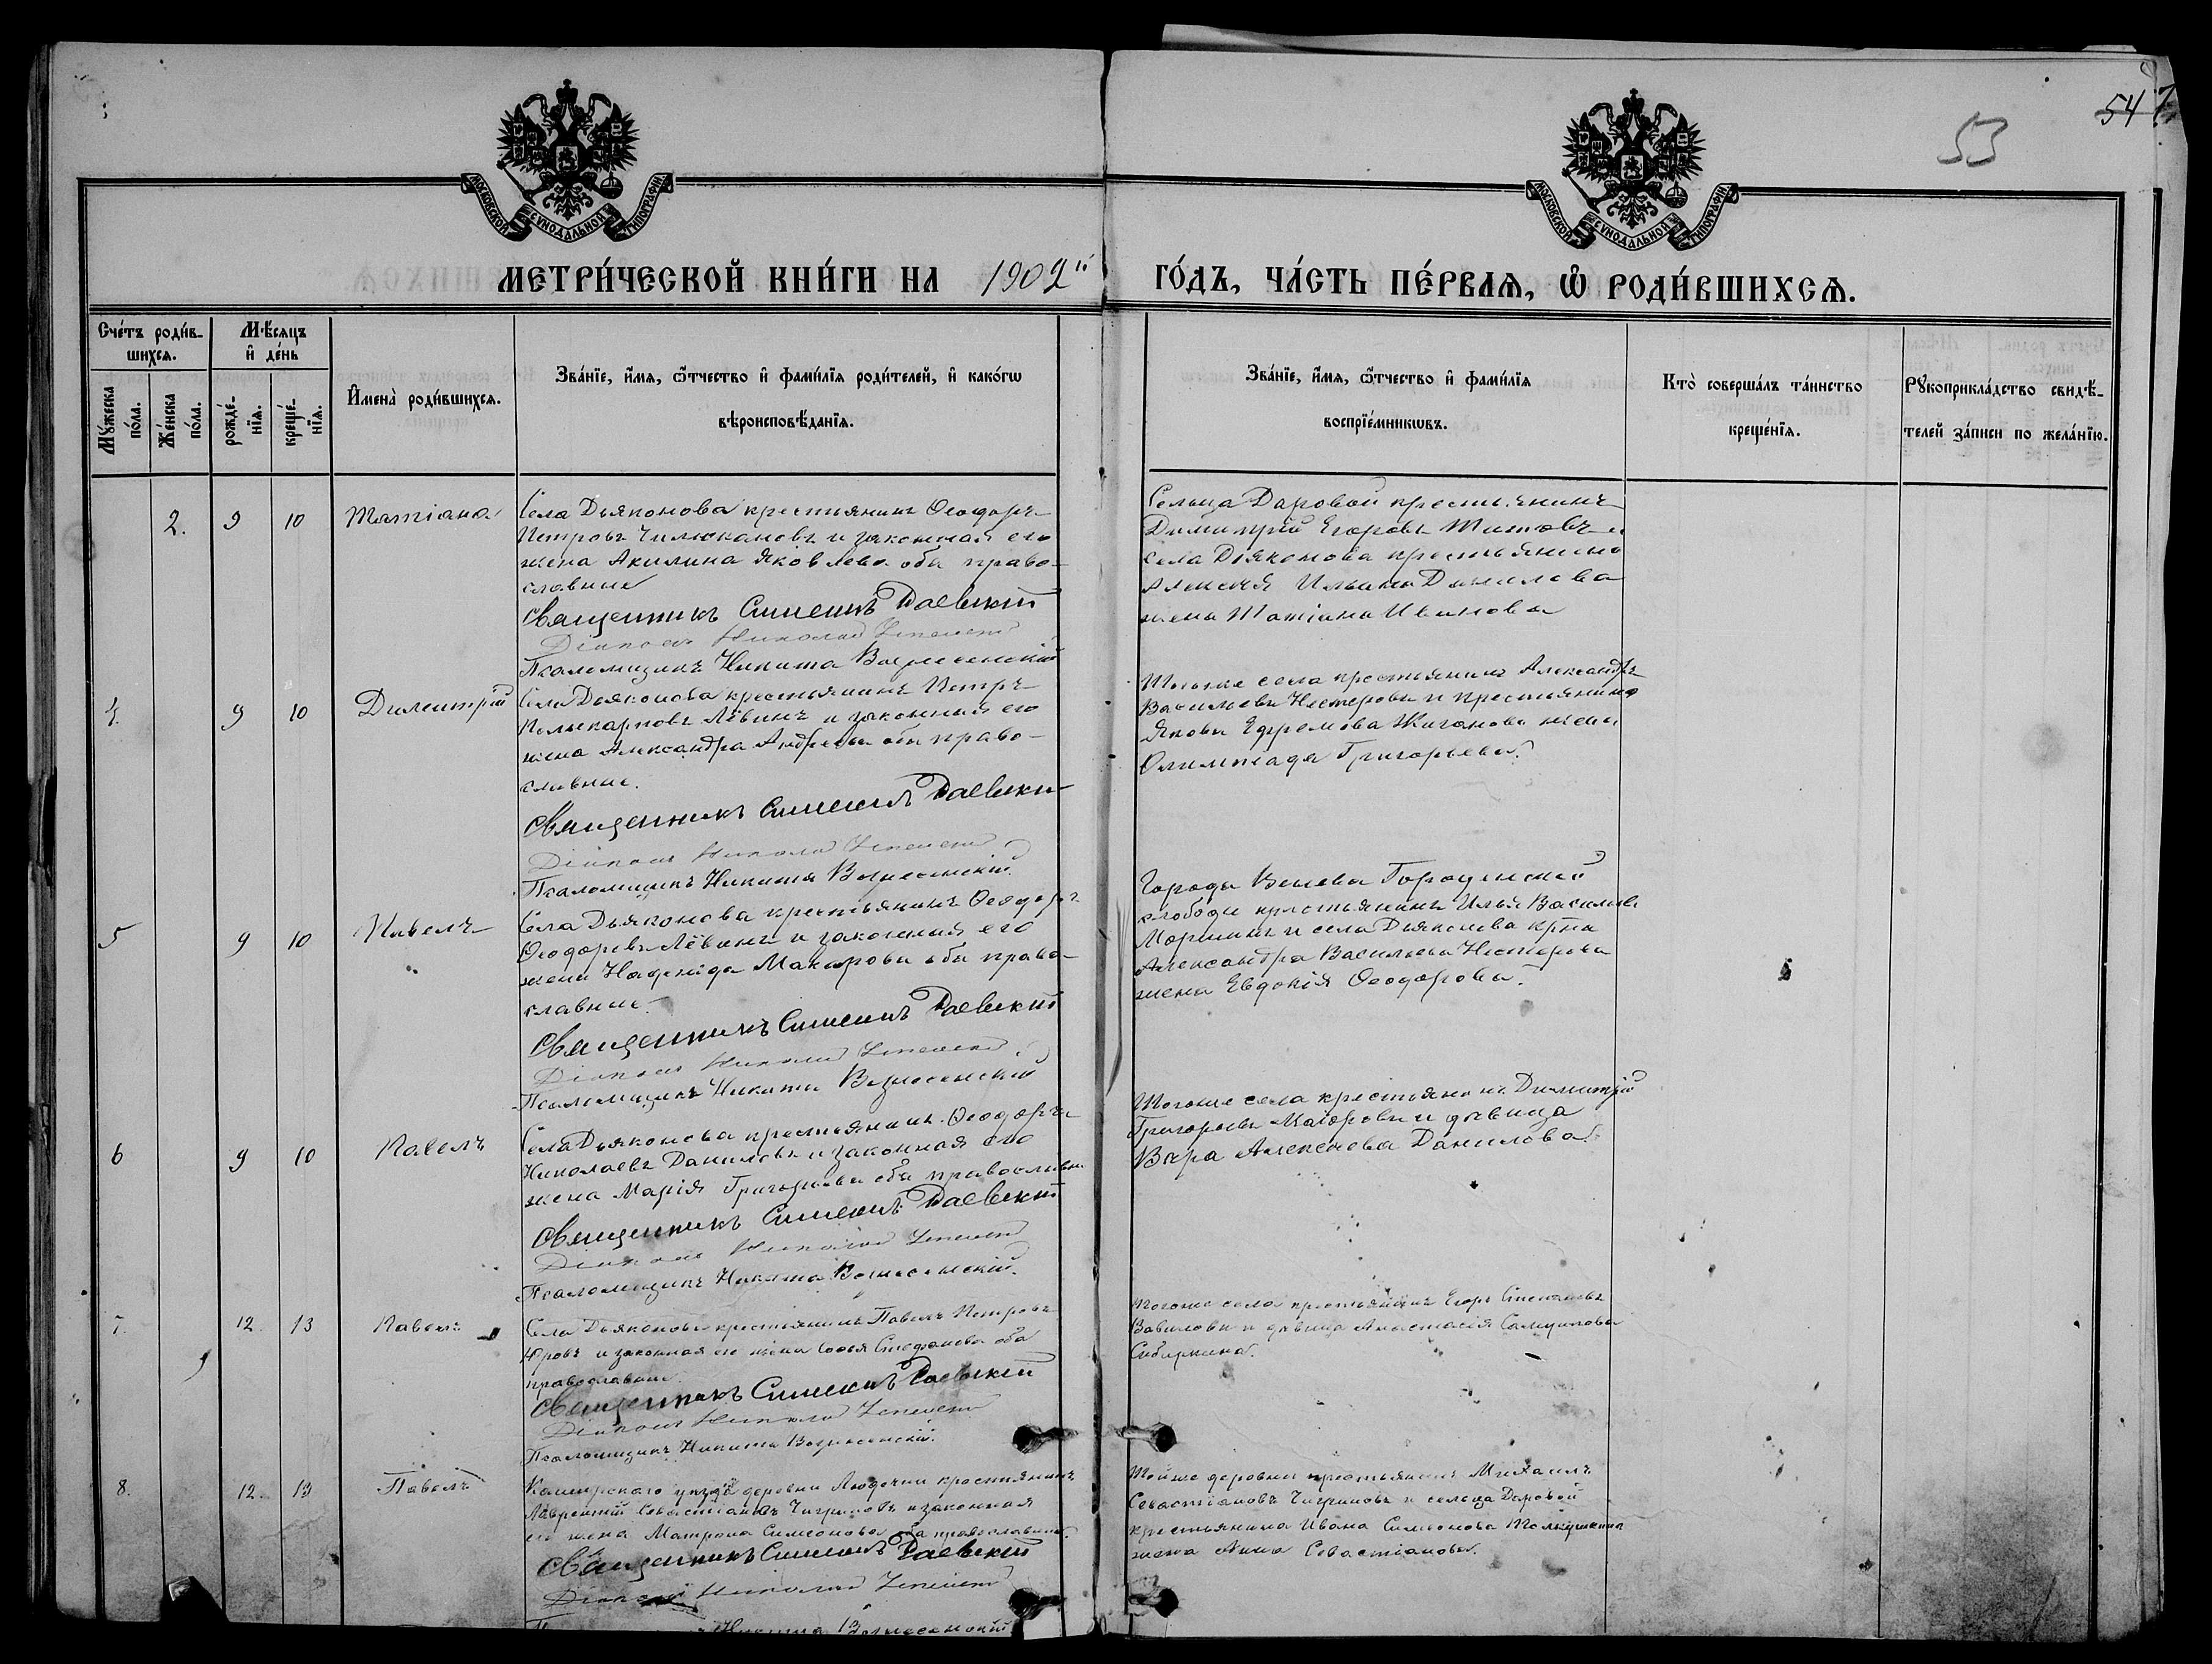 54
53
МОСКОВСКОЙ СѴНОДАЛЬНОЙ ТИПОГРАФІИ
МОСКОВСКОЙ СѴНОДАЛЬНОЙ ТИПОГРАФІИ
МЕТРИ́ЧЕСКОЙ КНИ́ГИ НА 1902й ГО́ДЪ, ЧА́СТЬ ПЕ́РВАѦ, Ѡ҆ РОДИ́ВШИХСѦ.
Сче́тъ роди́в-
шихсѧ.
Мꙋ́жеска по́ла.
Же́нска по́ла.
Мѣ́сѧцъ
и҆ де́нь
рожде́-нїѧ.
креще́-нїѧ.
И҆мена̀ роди́вшихсѧ.
Зва́нїе, и҆́мѧ, ѻ҆́тчество и҆ фами́лїѧ роди́телей, и҆ како́гѡ
вѣроисповѣ́данїѧ.
Зва́нїе, и҆́мѧ, ѻ҆́тчество и҆ фами́лїѧ
воспрїе́мникѡвъ.
Кто̀ соверша́лъ та́инство
креще́нїѧ.
Рꙋкоприкла́дство свидѣ́-
телей за́писи по жела́нїю.
2. 9 10 Татіана
Села Дьяконова крестьянинъ Ѳеодоръ
Петровъ и законная его
жена Акилина Яковлева оба право-
славные
Священникъ Симеонъ Раевскій
Діаконъ Николай
Псаломщикъ Никита Вознесенскій
Сельца Даровой крестьянинъ
Димитрій Егоровъ Титовъ и
села Дьяконова крестьянина
Алексѣя Ильина Данилова
жена Татіана Иванова
4. 9 10 Димитрій
Села Дьяконова крестьянинъ Петръ
Поликарповъ Лёвинъ и законная его
жена Александра Андреева оба право-
славные.
Священникъ Симеонъ Раевскій
Діаконъ Николай
Псаломщикъ Никита Вознесенскій
Тогоже села крестьянинъ Александръ
Васильевъ Нестеровъ и крестьянина
Якова Ефремова Жиганова жена
Олимпіада Григорьева.
5 9 10 Павелъ
Села Дьяконова крестьянинъ Ѳеодоръ
Ѳеодоровъ Лёвинъ и законная его
жена Надежда Макарова оба право-
славные.
Священникъ Симеонъ Раевскій
Діаконъ Николай
Псаломщикъ Никита Вознесенскій
Города Венева Городенской
слободы крестьянинъ Илья Васильевъ
Моршинъ и села Дьяконова крна
Александра Васильева Нестерова
жена Евдокія Ѳеодорова.
6 9 10 Павелъ
Села Дьяконова крестьянинъ Ѳеодоръ
Николаевъ Даниловъ и законная его
жена Марія Григорьева оба православные
Священникъ Симеонъ Раевскій
Діаконъ Николай
Псаломщикъ Никита Вознесенскій.
Тогоже села крестьянинъ Димитрій
Григорьевъ Маіоровъ и дѣвица
Вѣра Алексѣева Данилова.
7. 12. 13 Павелъ
Села Дьяконова крестьянинъ Павелъ Петровъ
Юровъ и законная его жена Софья Стефанова оба
православные
Священникъ Симеонъ Раевскій
Діаконъ Николай
Псаломщикъ Никита Вознесенскій.
Тогоже села крестьянинъ Егоръ Степановъ
Вавиловъ и дѣвица Анастасія Самуилова
Сибиркина.
8. 12. 13 Павелъ
Каширскаго уѣзда деревни крестьянинъ
Лаврентій Севастіановъ Чигриновъ и законная
его жена Матрона Симеонова оба православные.
Священникъ Симеонъ Раевскій
Діаконъ Николай
Никита Вознесенскій
Тойже деревни крестьянинъ Михаилъ
Севастіановъ Чигриновъ и сельца Даровой
крестьянина Ивана Симеонова
жена Анна Севастіанова.